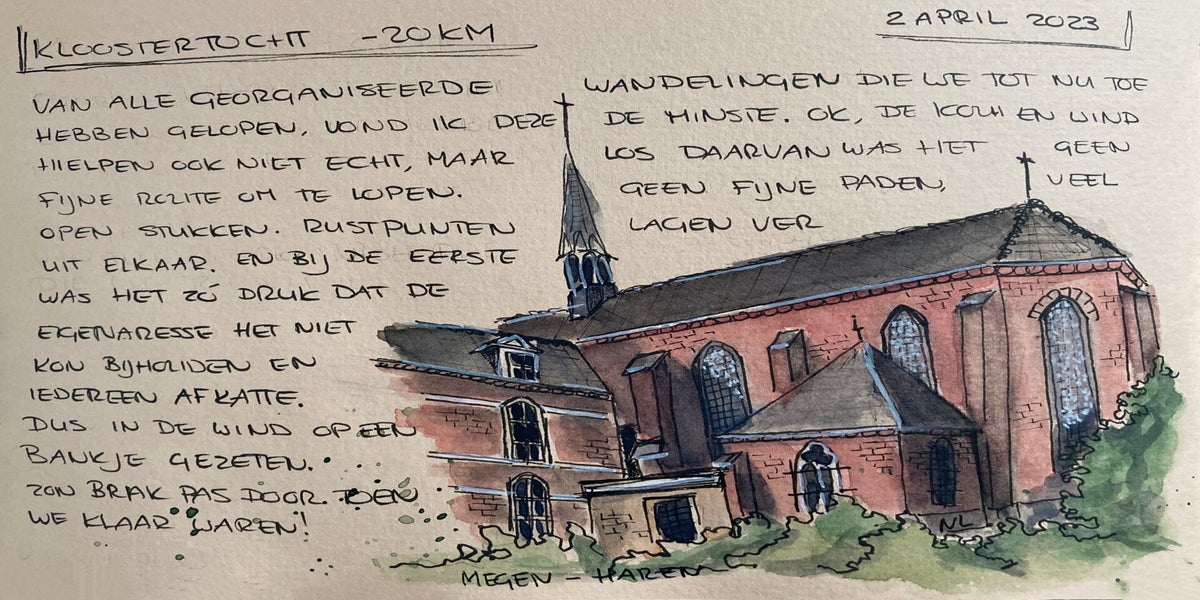 KLOOSTERTOCHT - 20KM
2 APRIL 2023
VAN ALLE GEORGANISEERDE WANDELINGEN DIE WE TOT NU TOE
HEBBEN GELOPEN, VOND IK DEZE DE MINSTE. OK, DE KOU EN WIND
HIELPEN OOK NIET ECHT, MAAR LOS DAARVAN WAS HET GEEN
FIJNE ROUTE OM TE LOPEN. GEEN FIJNE PADEN, VEEL
OPEN STUKKEN. RUSTPUNTEN LAGEN VER
UIT ELKAAR. EN BIJ DE EERSTE
WAS HET ZÓ DRUK DAT DE
EIGENARESSE HET NIET
KON BIJHOUDEN EN
IEDEREEN AFKATTE.
DUS IN DE WIND OP EEN
BANKJE GEZETEN.
ZON BRAK PAS DOOR TOEN
WE KLAAR WAREN!
NL
MEGEN - HAREN